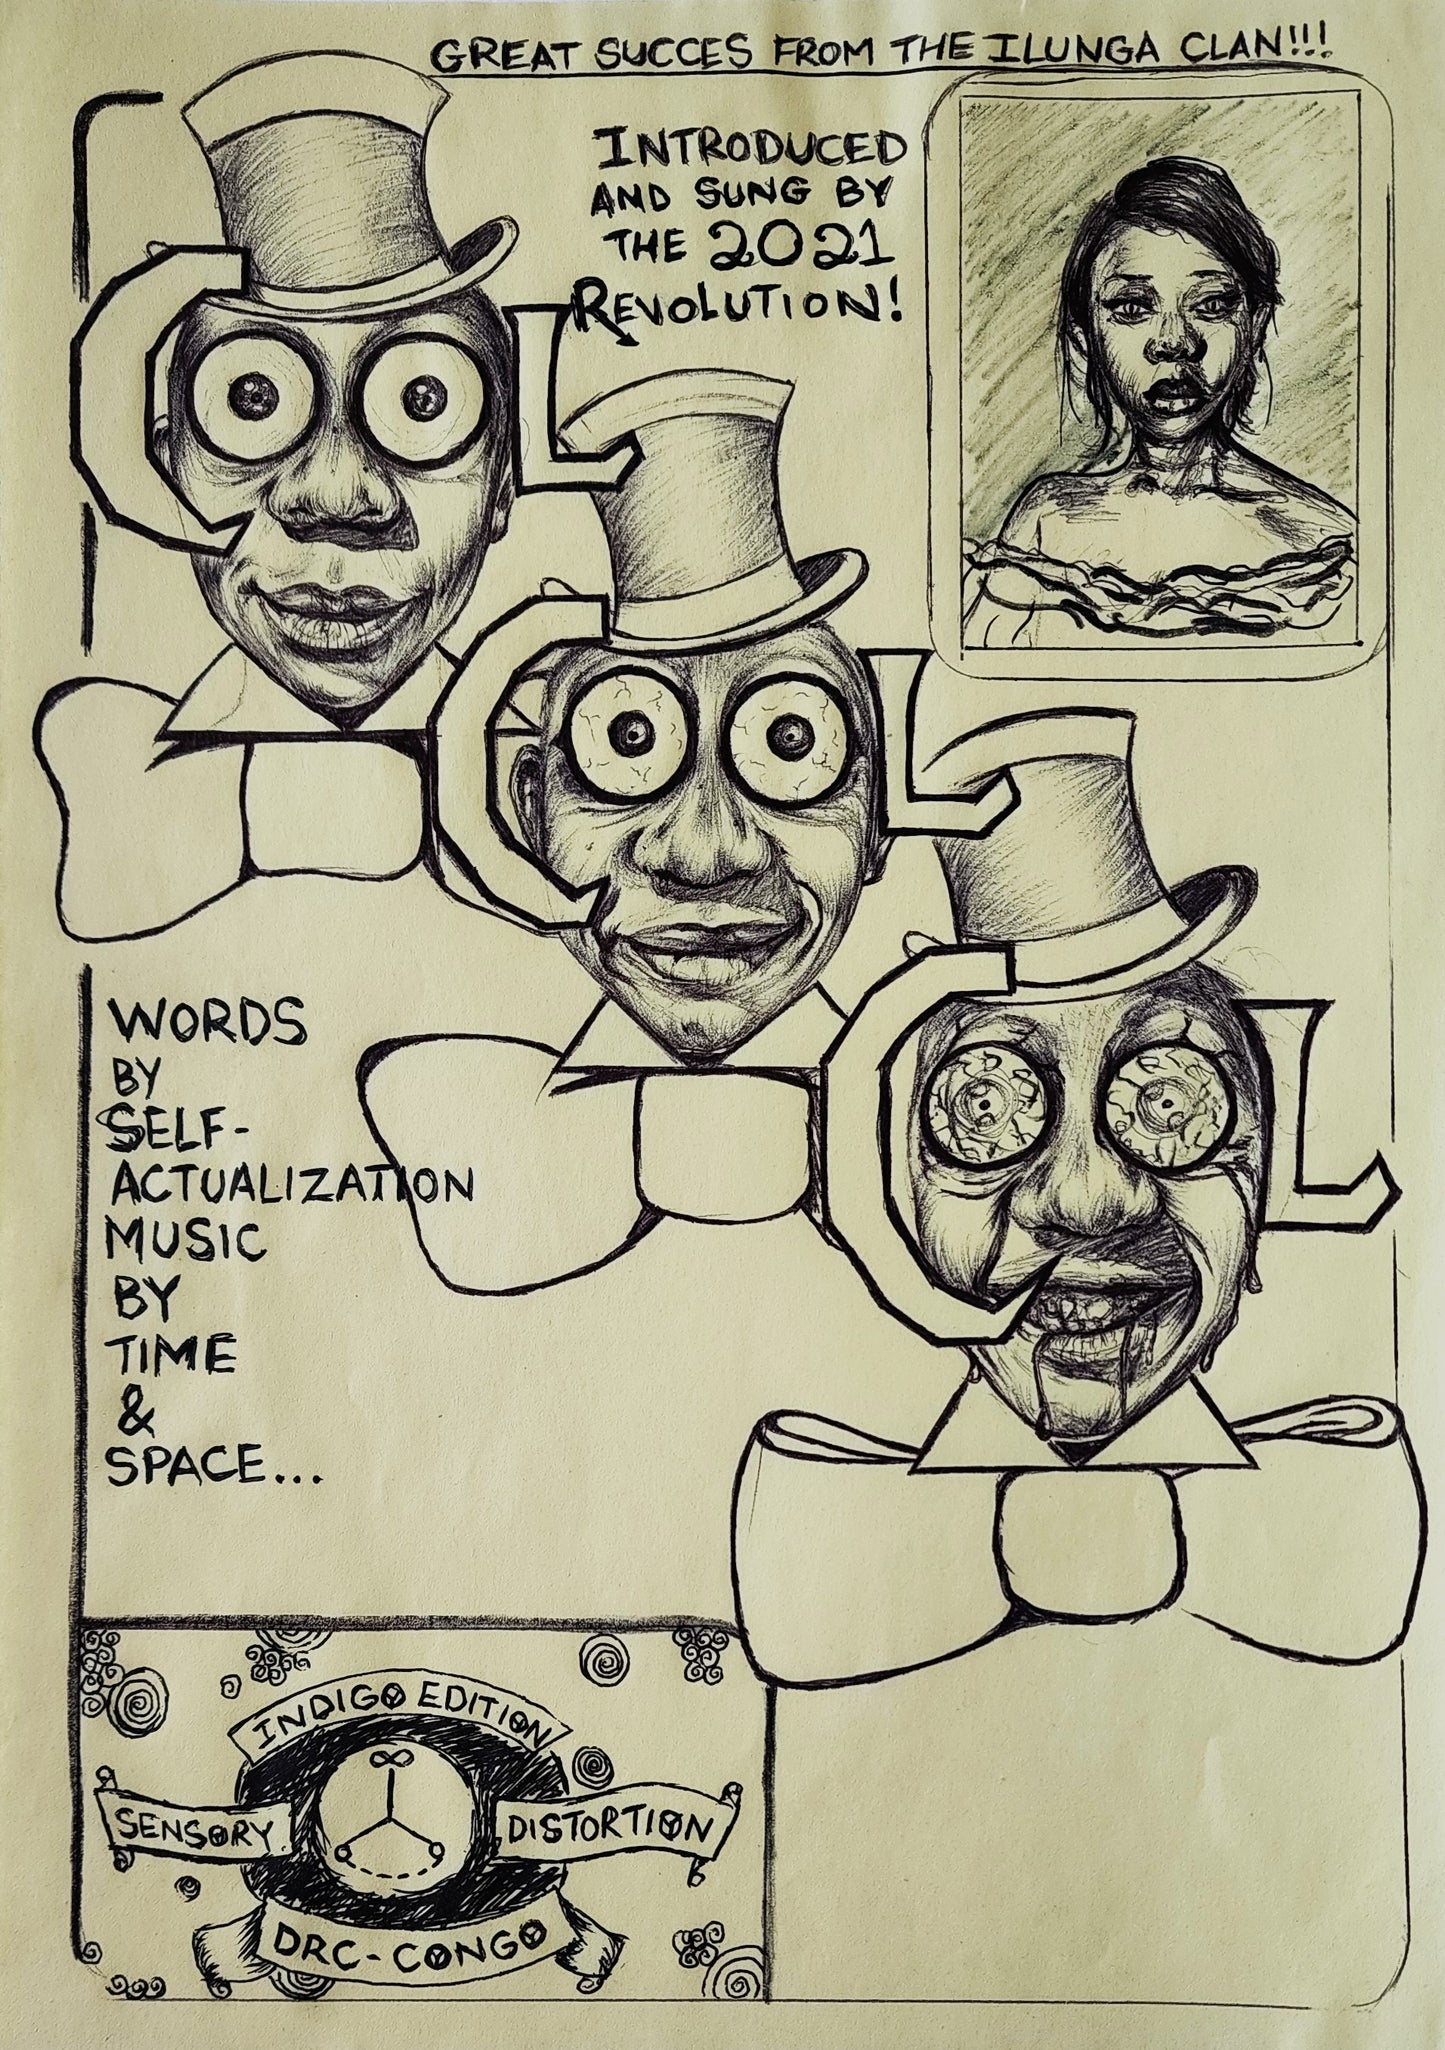 GREAT SUCCES FROM THE ILUNGA CLAN!!!
INTRODUCED
AND SUNG BY
THE 2021
REVOLUTION!
COOL
COOL
COOL
WORDS
BY
SELF-
ACTUALIZATION
MUSIC
BY
TIME
&
SPACE...
INDIGO EDITION
SENSORY DISTORTION
DRC-CONGO